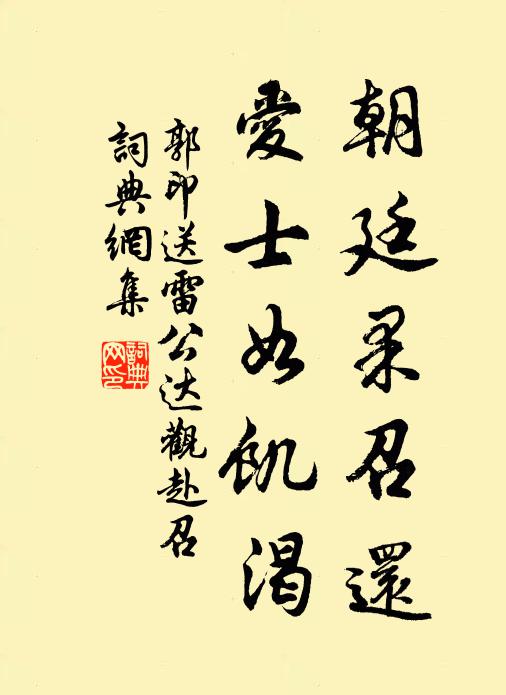 朝廷柔召還
愛士如飢渴
郭印送雷公达觀赴召
詞典網集
詞典網印